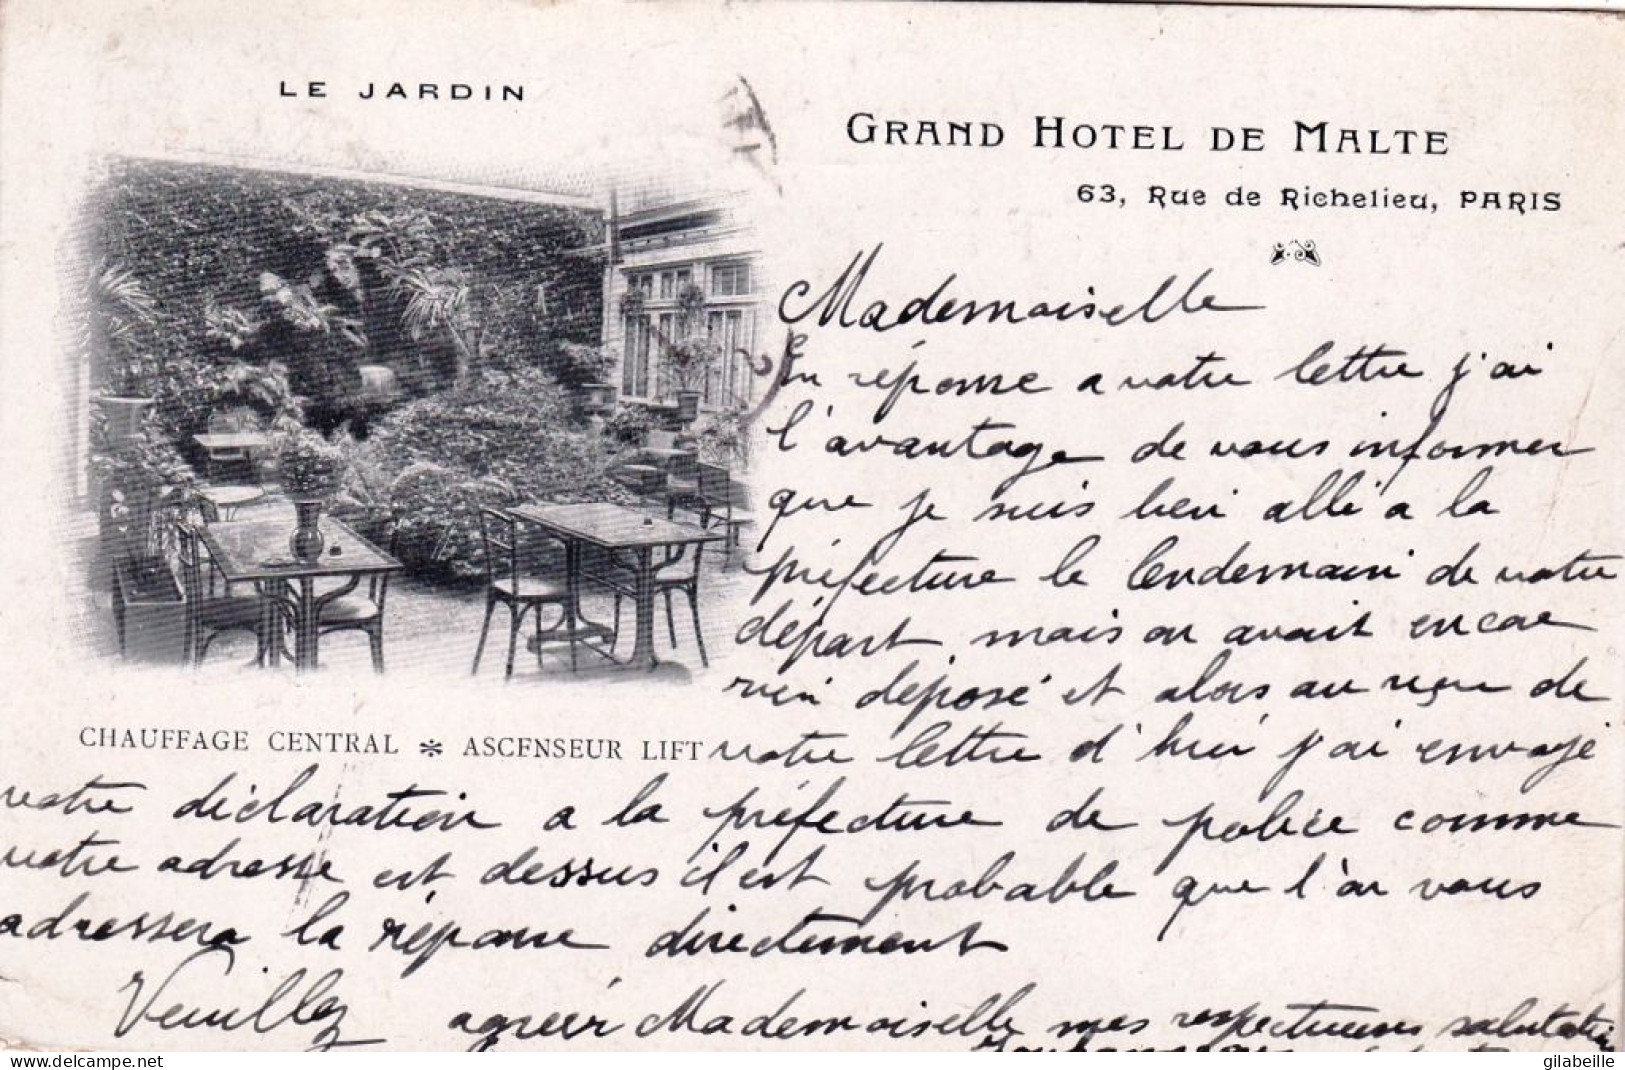 LE JARDIN
GRAND HOTEL DE MALTE
63, Rue de Richelieu, PARIS
Mademoiselle
En réponse a votre lettre j'ai
l'avantage de vous informer
que je suis bien allé a la
préfecture le lendemain de votre
départ, mais on avait encore
rien déposé et alors au reçu de
CHAUFFAGE CENTRAL * ASCENSEUR LIFT
votre lettre d'hier j'ai envoyé
votre déclaration a la préfecture de police comme
votre adresse est dessus il est probable que l'on vous
adressera la réponse directement
Veuillez agréer Mademoiselle mes respectueuses salutations
delcampe.net
gilabeille